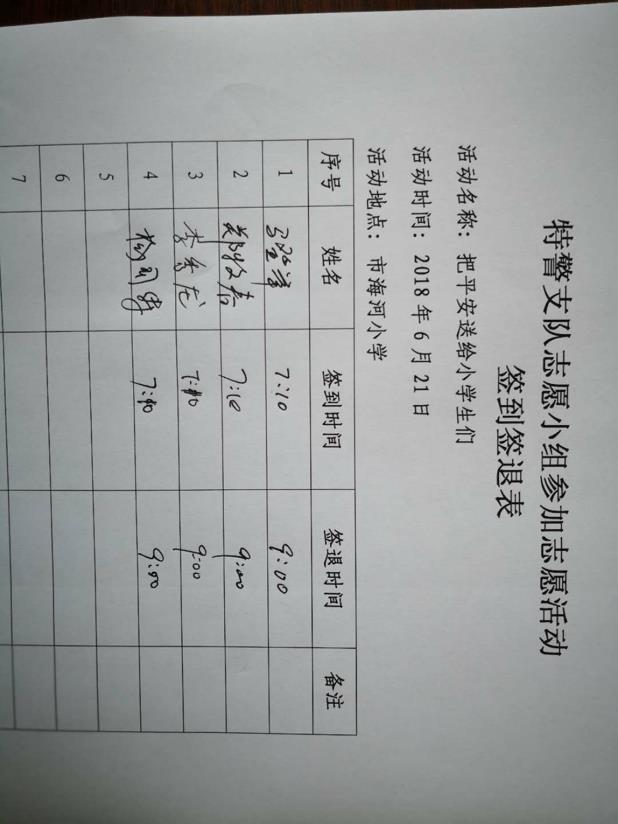 特警支队志愿小组参加志愿活动
签到签退表
活动名称：把平安送给小学生们
活动时间：2018年6月21日
活动地点：市海河小学
序号 姓名 签到时间 签退时间 备注
1 7:10 9:00
2 7:10 9:00
3 7:10 9:00
4 7:10 9:00
5
6
7